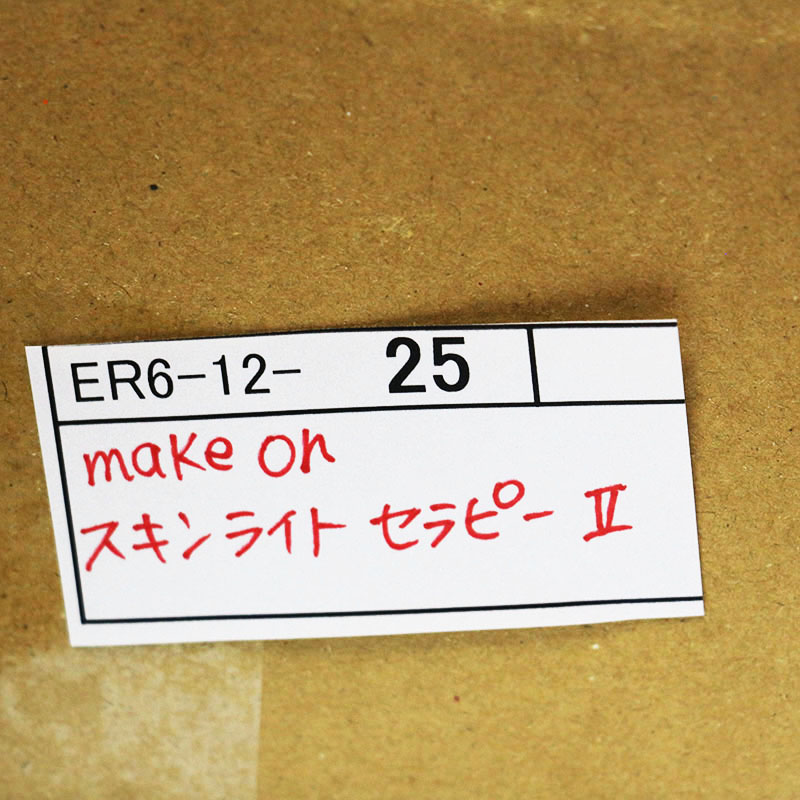 ER6-12- 25
make on
スキンライト セラピー Ⅱ